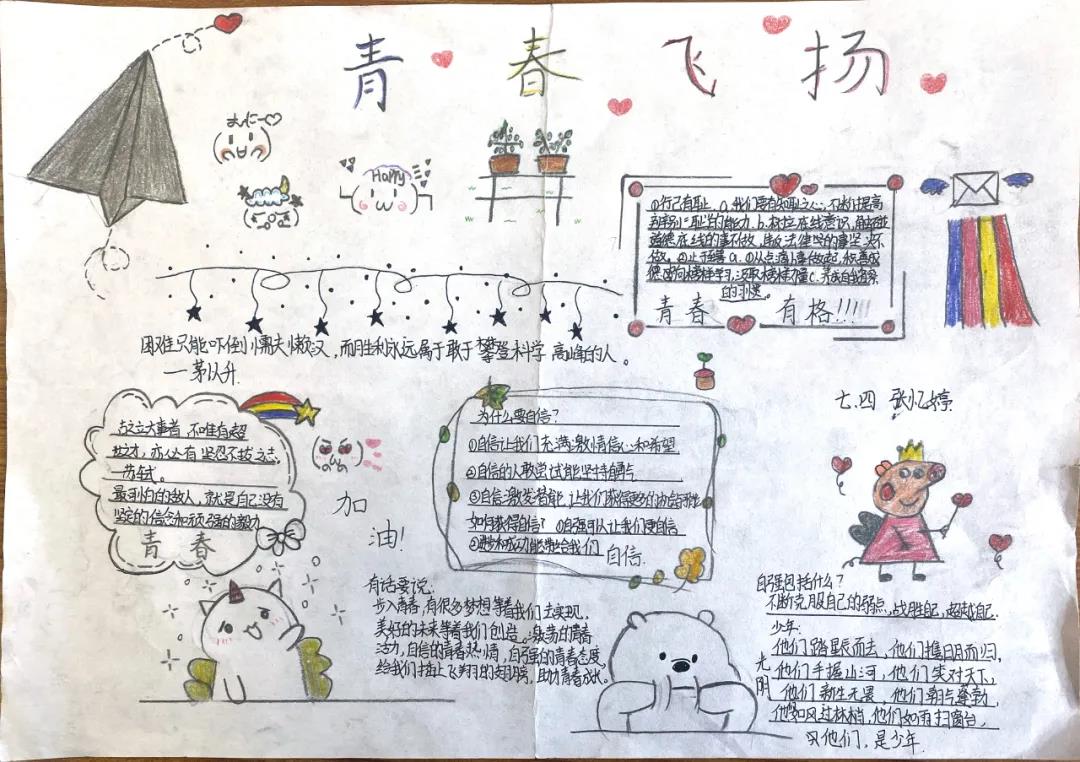 青春飞扬
Happy
①行己有耻。a.我们要有知耻之心,不断提高
辨别"耻"的能力.b.树立底线意识,触碰
道德底线的事不做,违反法律的事坚决不
做。②止于至善a.①从点滴小事做起,积善成
德
向榜样学习,汲取榜样力量c.养成自我省察
的习惯。
青春 有格!!!
困难只能吓倒懦夫懒汉,而胜利永远属于敢于攀登科学高峰的人。
—茅以升.
古之立大事者,不唯有超
世之才,亦必有坚忍不拔之志.
—苏轼.
最可怕的敌人,就是自己没有
坚定的信念和顽强的毅力
青春
加
油!
为什么要自信?
①自信让我们充满激情信心和希望
②自信的人敢尝试能坚持有勇气
③自信激发潜能,让我们获得更多的
如何获得自信?①自强可以让我们更自信
②进步和成功能带给我们自信.
七.四 张忆婷
有话要说:
步入青春,有很多梦想等着我们去实现,
美好的未来等着我们创造。激荡的青春
活力,自信的青春热情,自强的青春态度,
给我们插上飞翔的翅膀,助力青春成长。
自强包括什么?
不断克服自己的弱点,战胜自己,超越自己.
少年:
他们踏星辰而去,他们携日月而归,
他们手握山河,他们笑对天下,
他们新生无畏,他们朝气蓬勃
他们如风过林梢,他们如雨扫窗台,
只他们,是少年.
光阴